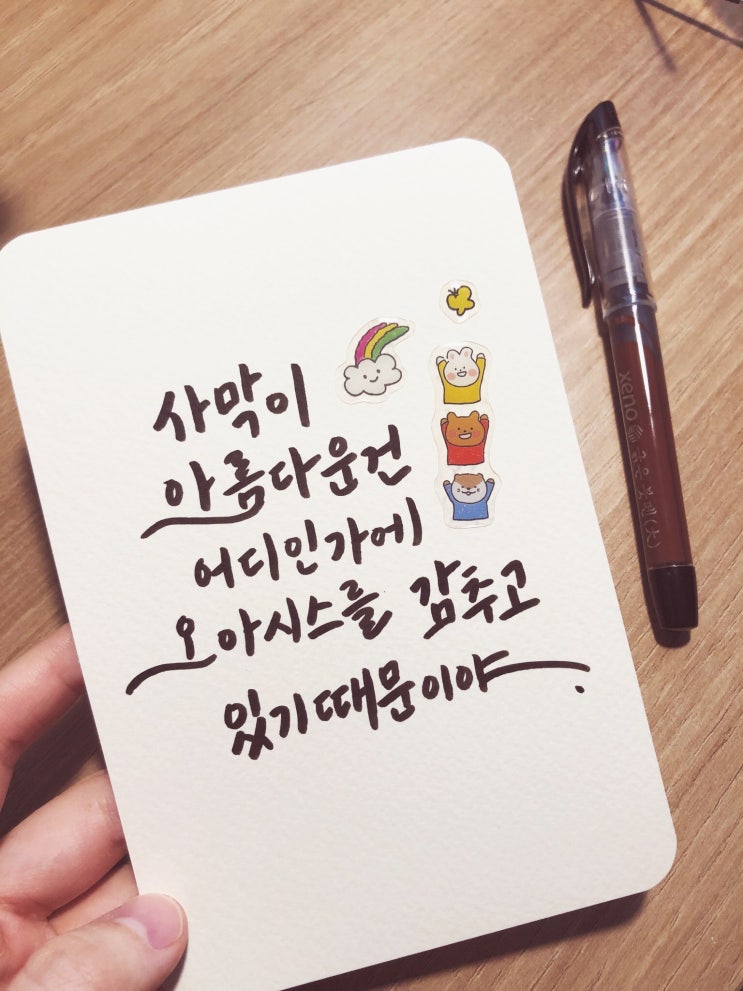 사막이
아름다운건
어디인가에
오아시스를 감추고
있기때문이야.
xeno